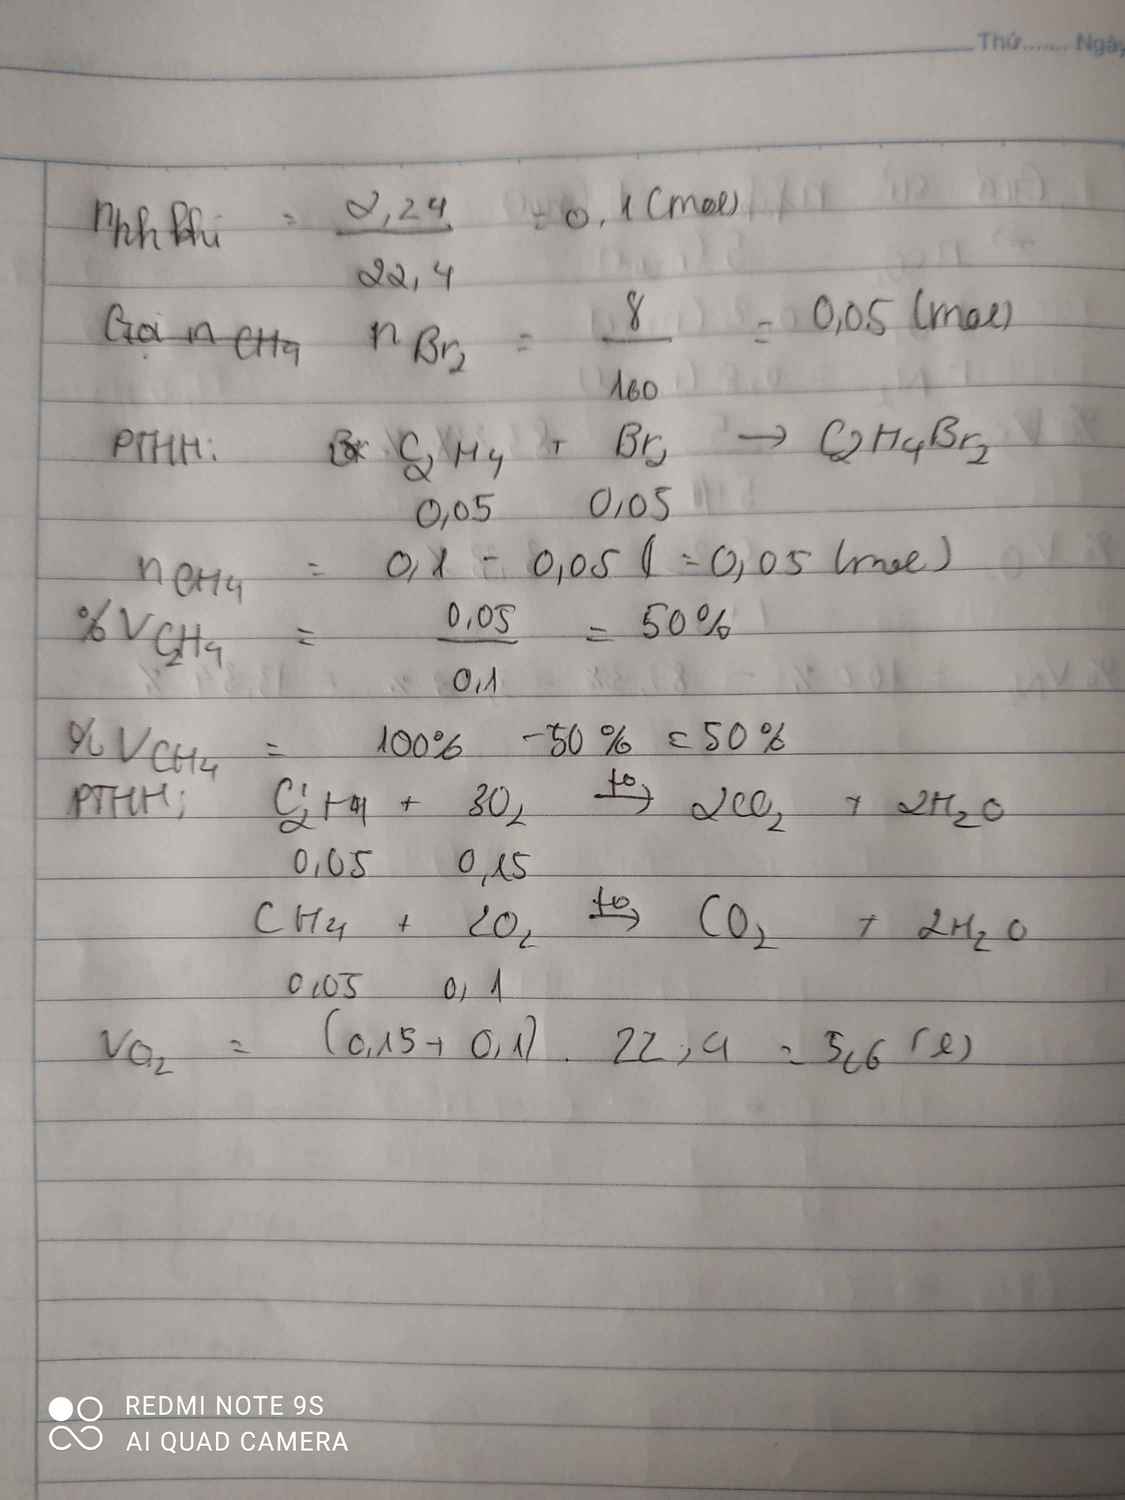 Thứ....... Ngày
nhh khí = 2,24 / 22,4 = 0,1 (mol)
Gọi nCH4 nBr2 = 8 / 160 = 0,05 (mol)
PTHH: Br C2H4 + Br2 → C2H4Br2
0,05 0,05
nCH4 = 0,1 - 0,05 ( = 0,05 (mol)
%VC2H4 = 0,05 / 0,1 = 50%
%VCH4 = 100% - 50% = 50%
PTHH: C2H4 + 3O2 to→ 2CO2 + 2H2O
0,05 0,15
CH4 + 2O2 to→ CO2 + 2H2O
0,05 0,1
VO2 = (0,15 + 0,1) . 22,4 = 5,6 (l)
REDMI NOTE 9S
AI QUAD CAMERA